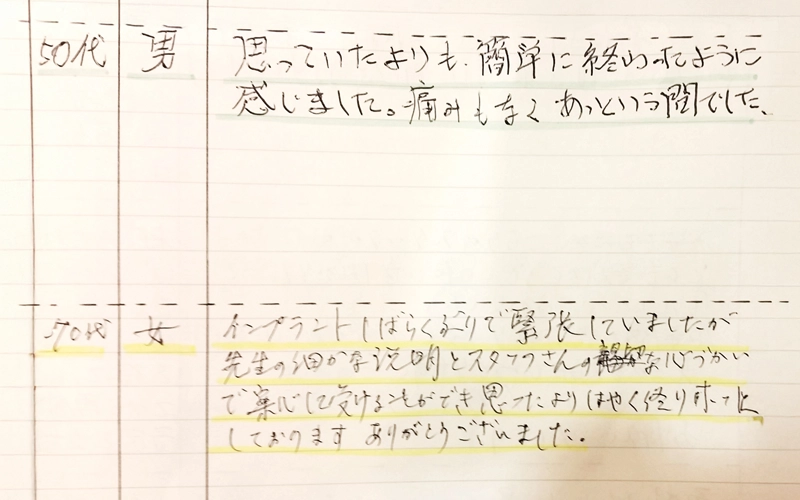 50代 男 思っていたよりも、簡単に終わったように
感じました。痛みもなく あっという間でした、
70代 女 インプラントしばらくぶりで緊張していましたが
先生の細かな説明とスタッフさんの な心づかい
で安心して受けることができ思ったよりはやく終りホッと
しております ありがとうございました。